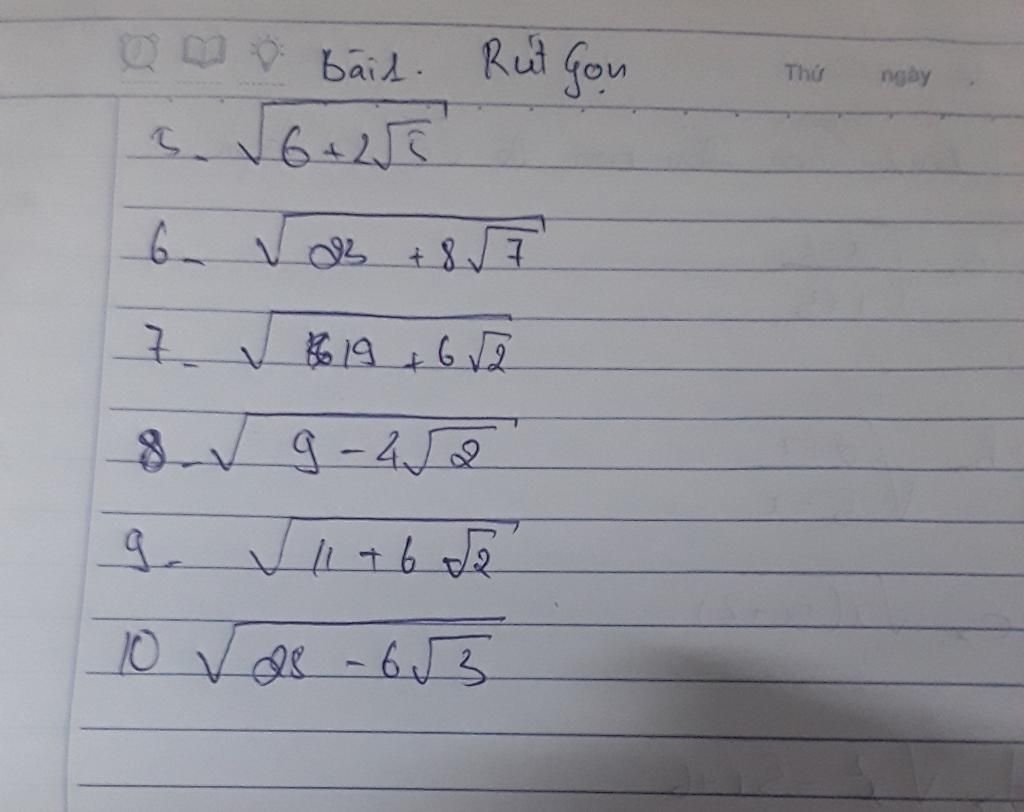 Bài 1. Rút Gọn Thứ ngày
5- √(6+2√5)
6- √(23 + 8√7)
7- √(19 + 6√2)
8- √(9 - 4√2)
9- √(11 + 6√2)
10 √(28 - 6√3)